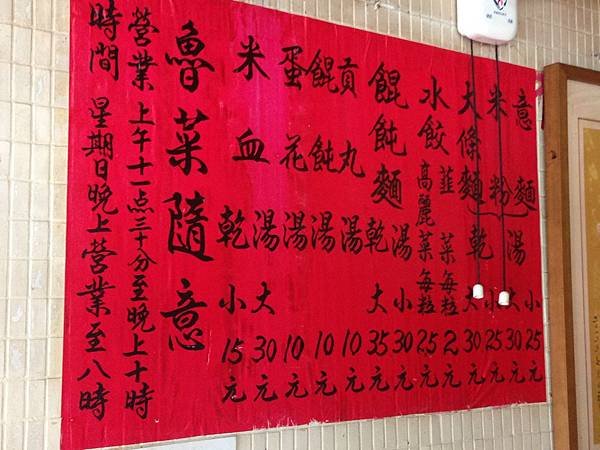 意麵湯小25元
米粉乾小25元
大條麵乾大30元
水餃韮菜每粒2元
高麗菜每粒2.5元
餛飩麵湯小30元
乾大35元
貢丸湯10元
餛飩湯10元
蛋花湯10元
米血湯大30元
乾小15元
魯菜隨意
營業上午十一点三十分至晚上十時
時間星期日晚上營業至八時